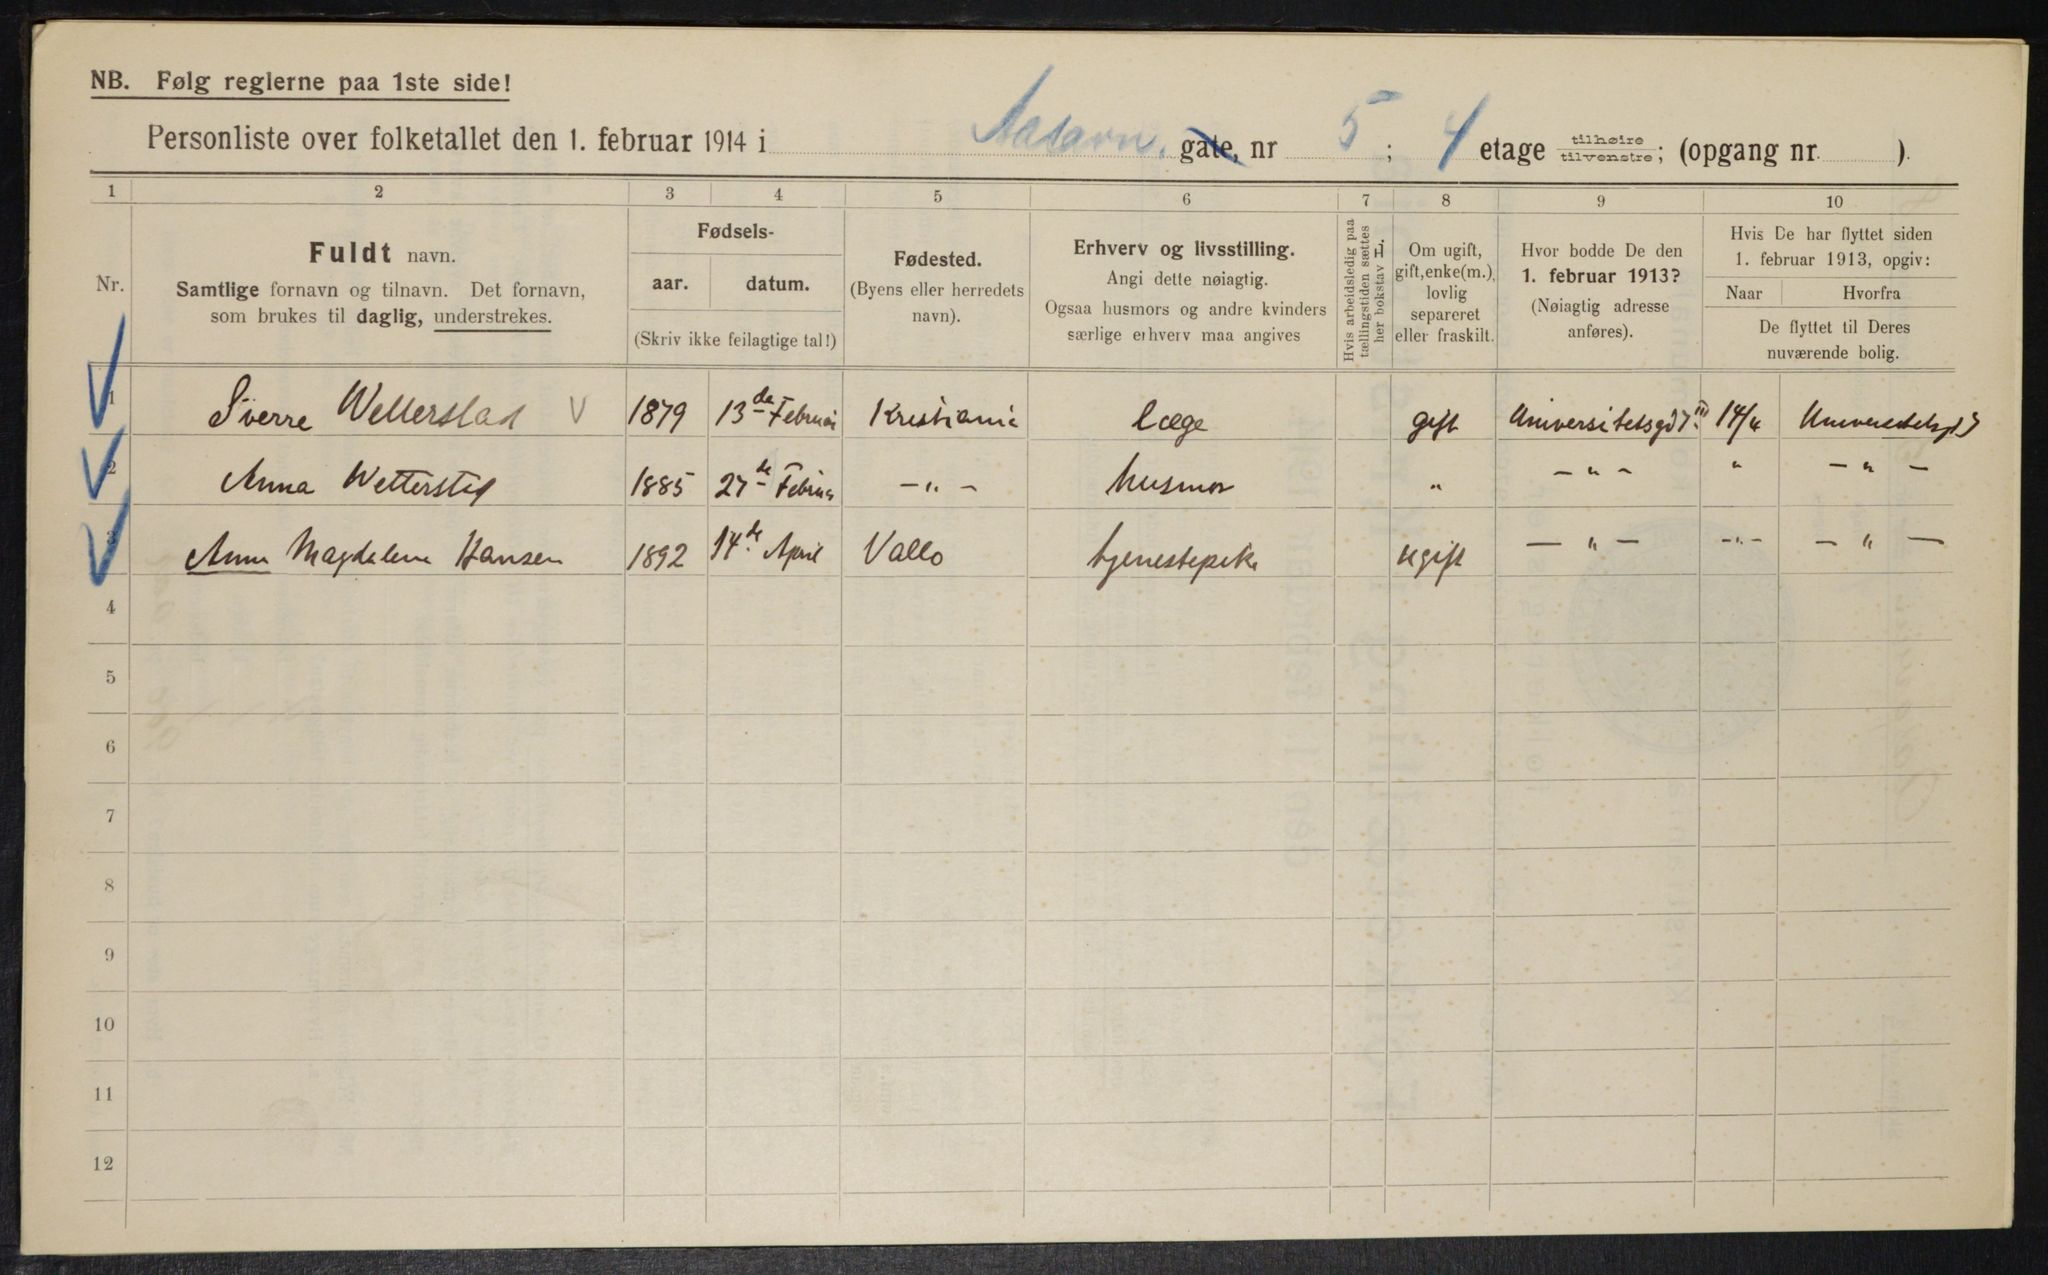 NB. Følg reglerne paa 1ste side!
Personliste over folketallet den 1. februar 1914 i Aasavn. gate, nr 5; 4 etage tilhøire/tilvenstre; (opgang nr. ).
1 2 3 4 5 6 7 8 9 10
Nr.
Fuldt navn.
Samtlige fornavn og tilnavn. Det fornavn,
som brukes til daglig, understrekes.
Fødsels-
aar. datum.
(Skriv ikke feilagtige tal!)
Fødested.
(Byens eller herredets
navn).
Erhverv og livsstilling.
Angi dette nøiagtig.
Ogsaa husmors og andre kvinders
særlige erhverv maa angives
Hvis arbeidsledig paa
tællingstiden sættes
her bokstav L.
Om ugift,
gift, enke(m.),
lovlig
separeret
eller fraskilt.
Hvor bodde De den
1. februar 1913?
(Nøiagtig adresse
anføres).
Hvis De har flyttet siden
1. februar 1913, opgiv:
Naar Hvorfra
De flyttet til Deres
nuværende bolig.
1 Sverre Wetterstad V 1879 13de Februar Kristiania Læge gift Universitetsgd 7 III 14/4
2 Anna Wetterstad 1885 27de Februar —"— husmor " —"— " —"—
3 Anna Magdalena Hansen 1892 14de April Vallo tjenestepike ugift —"— —"— —"—
4
5
6
7
8
9
10
11
12